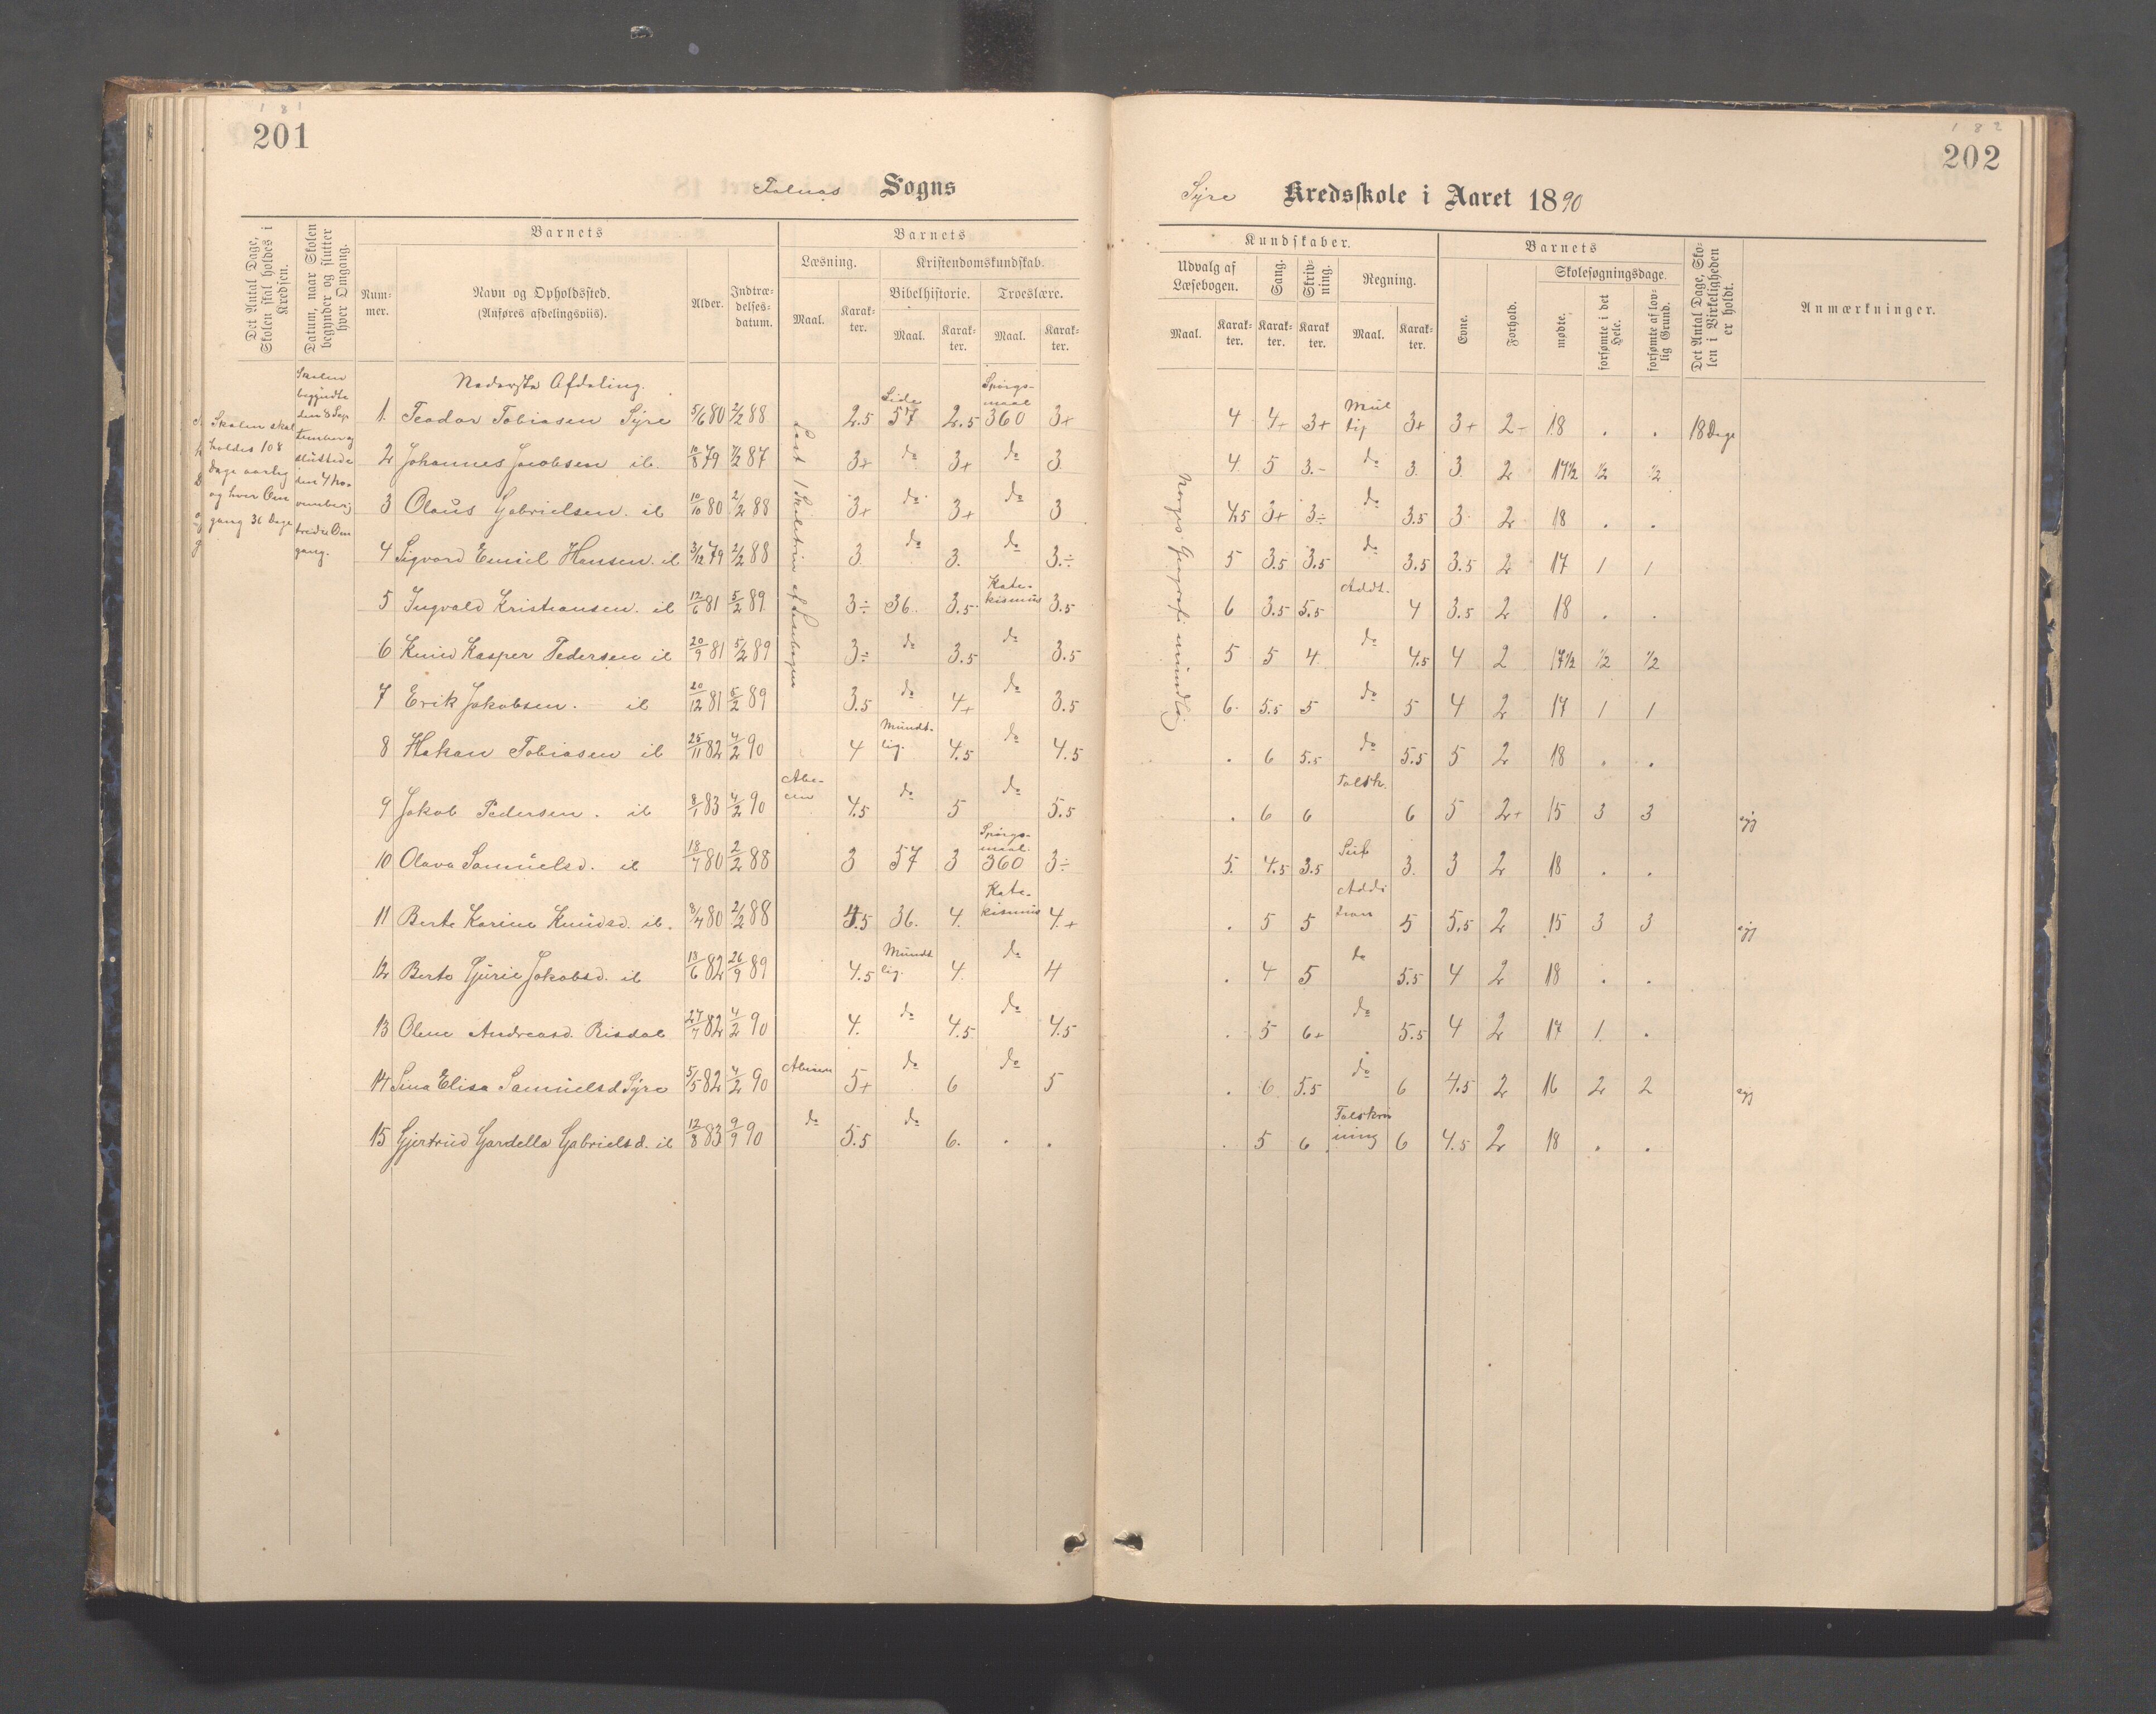 1 8 1
201
Falnæs Sogns
Det Antal Dage, Skolen skal holdes i Kredsen.
Datum, naar Skolen begynder og slutter hver Omgang.
Barnets
Barnets
Num-mer.
Navn og Opholdssted.
(Anføres afdelingsviis).
Alder.
Indtræ-delses-datum.
Læsning.
Kristendomskundskab.
Bibelhistorie.
Troeslære.
Maal.
Karak-ter.
Maal.
Karak-ter.
Maal.
Karak-ter.
Skolen skal holdes 108 Dage aarlig og hver Omgang 36 Dage
Skolen begyndte den 8 September og sluttede den 4 November, tredie Omgang.
Nederste Afdeling.
Læst 1 Skoletrin af Læsebogen
1. Teodor Tobiasen Syre 5/6 80 2/2 88 2.5 Side 57 2.5 Spørgs-maal 360 3+
2 Johannes Jacobsen ib. 10/8 79 7/2 87 3+ do 3+ do 3
3 Olaus Gabrielsen. ib 10/10 80 2/2 88 3+ do 3+ do 3
4 Sigvard Emil Hansen. ib 3/12 79 2/2 88 3 do 3. do 3.÷
5 Ingvald Kristiansen. ib 12/6 81 5/2 89 3÷ 36. 3.5 Kate-kismus 3.5
6 Knud Kasper Pedersen ib 20/9 81 5/2 89 3÷ do 3.5 do 3.5
7 Erik Jakobsen. ib 20/12 81 5/2 89 3.5 do 4+ do 3.5
8 Hakan Tobiasen ib 25/11 82 4/2 90 4 Mundt-lig. 4.5 do 4.5
9 Jakob Pedersen. ib 8/1 83 4/2 90 Abe-cen 4.5 do 5 do 5.5
10 Olava Samuelsd. ib 18/7 80 2/2 88 3 57 3 Spørgs-maal. 360 3÷
11 Berte Karine Knudsd. ib. 3/4 80 2/2 88 4.5 36. 4. Kate-kismus 4.+
12 Berte Gurie Jakobsd. ib 18/6 82 26/9 89 4.5 Mundt lig. 4. do 4
13 Olene Andreasd. Risdal 27/7 82 4/2 90 4. do 4.5 do 4.5
14 Sina Elisa Samuelsd Syre 5/5 82 4/2 90 Abecen 5+ do 6 do 5
15 Gjertrud Gardella Gabrielsd. ib 12/8 83 9/9 90 do 5.5 do 6. . .
1 8 2
202
Syre Kredsskole i Aaret 1890
Kundskaber.
Barnets
Udvalg af Læsebogen.
Sang.
Skriv-ning.
Regning.
Evne.
Forhold.
Skolesøgningsdage.
Det Antal Dage, Sko-len i Virkeligheden er holdt.
Anmærkninger.
Maal.
Karak-ter.
Karak-ter.
Karak ter.
Maal.
Karak-ter.
mødte.
forsømte i det Hele.
forsømte af lov-lig Grund.
Norges Geografi mundtlig
4 4+ 3+ Mul tip 3+ 3+ 2- 18 . . 18 Dage
4. 5 3.- do 3. 3. 2 17½ ½ ½
4.5 3+ 3÷ do 3.5 3 2 18 . .
5 3.5 3.5 do 3.5 3.5 2 17 1 1
6 3.5 5.5 Addt. 4 3.5 2 18 . .
5 5 4. do 4.5 4 2 17½ ½ ½
6. 5.5 5 do 5 4 2 17 1 1
. 6 5.5 do 5.5 5 2 18 . .
. 6 6 Talsk. 6 5 2+ 15 3 3 syg
5. 4.5 3.5 Sub 3. 3 2 18 . .
. 5 5 Addi tion 5 5.5 2 15 3 3 syg
. 4 5 do 5.5 4 2 18 . .
. 5 6+ do 5.5 4 2 17 1. .
. 6 5.5 do 6 4.5 2 16 2 2 syg
. 5 6 Talskriv ning 6 4.5 2 18 . .